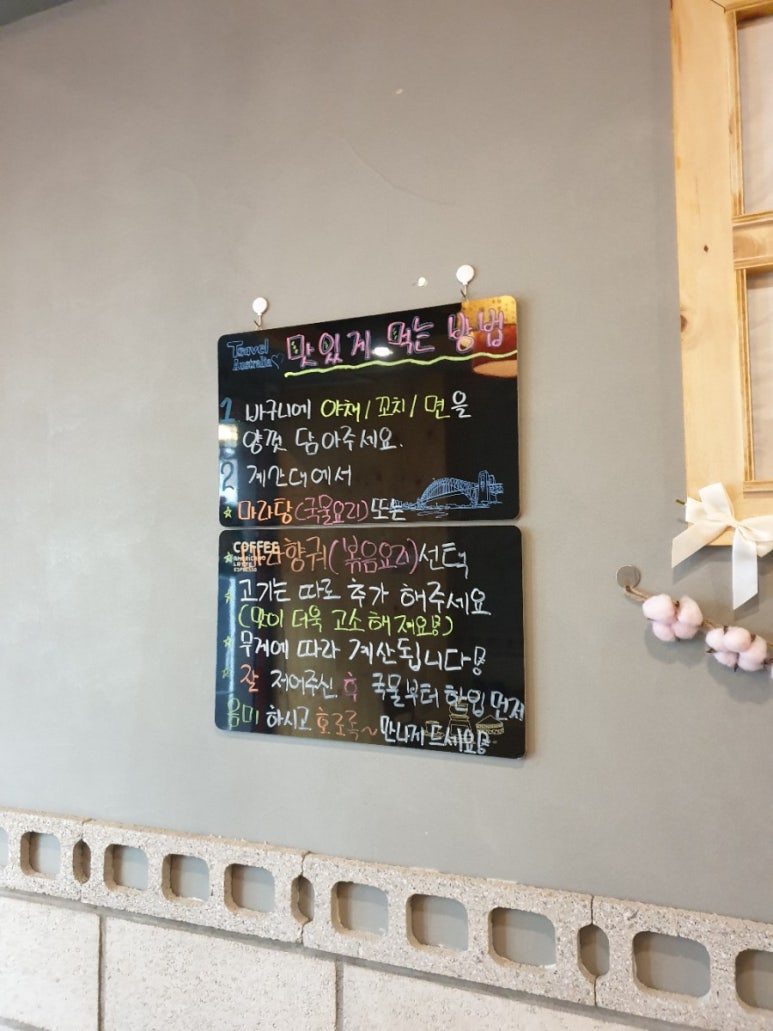 Travel
Australia
맛있게 먹는 방법
1 바구니에 야채/꼬치/면을
양껏 담아주세요.
2 계산대에서
☆ 마라탕(국물요리)또는
COFFEE
AMERICANO
LATTE
ESPRESSO
라향궈(볶음요리)선택
☆ 고기는 따로 추가 해주세요
(맛이 더욱 고소해져요!)
☆ 무게에 따라 계산됩니다!
☆ 잘 저어주신 후 국물부터 한입 먼저
음미 하시고 호로록~ 맛나게 드세요!